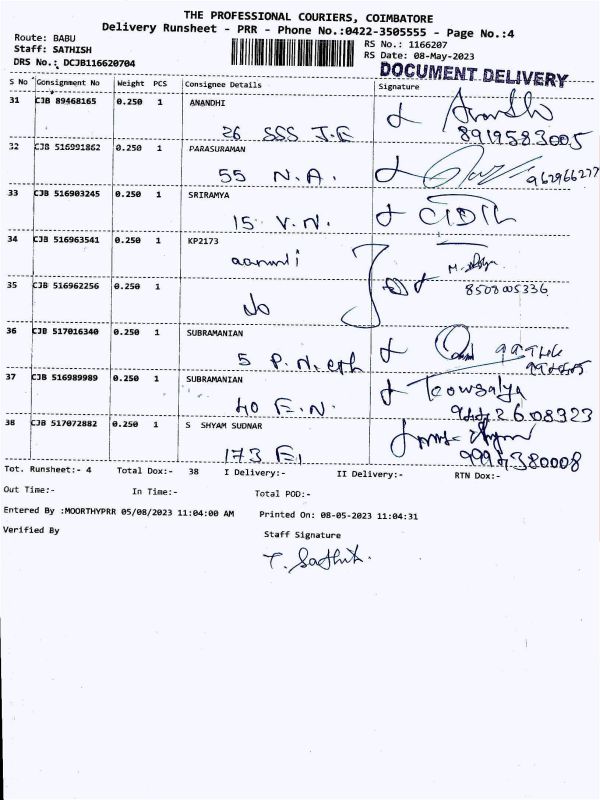 THE PROFESSIONAL COURIERS, COIMBATORE
Delivery Runsheet - PRR - Phone No.:0422-3505555 - Page No.:4
Route: BABU
Staff: SATHISH
DRS No.: DCJB116620704
RS No.: 1166207
RS Date: 08-May-2023
DOCUMENT DELIVERY
S No Consignment No Weight PCS Consignee Details Signature
31 CJB 89468165 0.250 1 ANANDHI
26 SSS I.E
8919583005
32 CJB 516991862 0.250 1 PARASURAMAN
55 N.A.
962966277
33 CJB 516903245 0.250 1 SRIRAMYA
15 V.N.
34 CJB 516963541 0.250 1 KP2173
35 CJB 516962256 0.250 1
8508005336
36 CJB 517016340 0.250 1 SUBRAMANIAN
5 P.N.
37 CJB 516989989 0.250 1 SUBRAMANIAN
40 E.N.
Gowsalya
38 CJB 517072882 0.250 1 S SHYAM SUDNAR
173 E,
9994380008
Tot. Runsheet:- 4 Total Dox:- 38 I Delivery:- II Delivery:- RTN Dox:-
Out Time:- In Time:- Total POD:-
Entered By :MOORTHYPRR 05/08/2023 11:04:00 AM Printed On: 08-05-2023 11:04:31
Verified By
Staff Signature
T. Sathish.